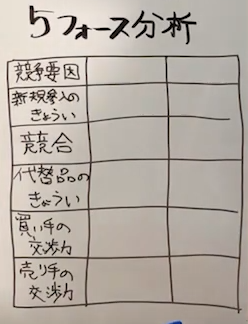 5フォース分析
競争要因
新規参入の
きょうい
競合
代替品の
きょうい
買い手の
交渉力
売り手の
交渉力